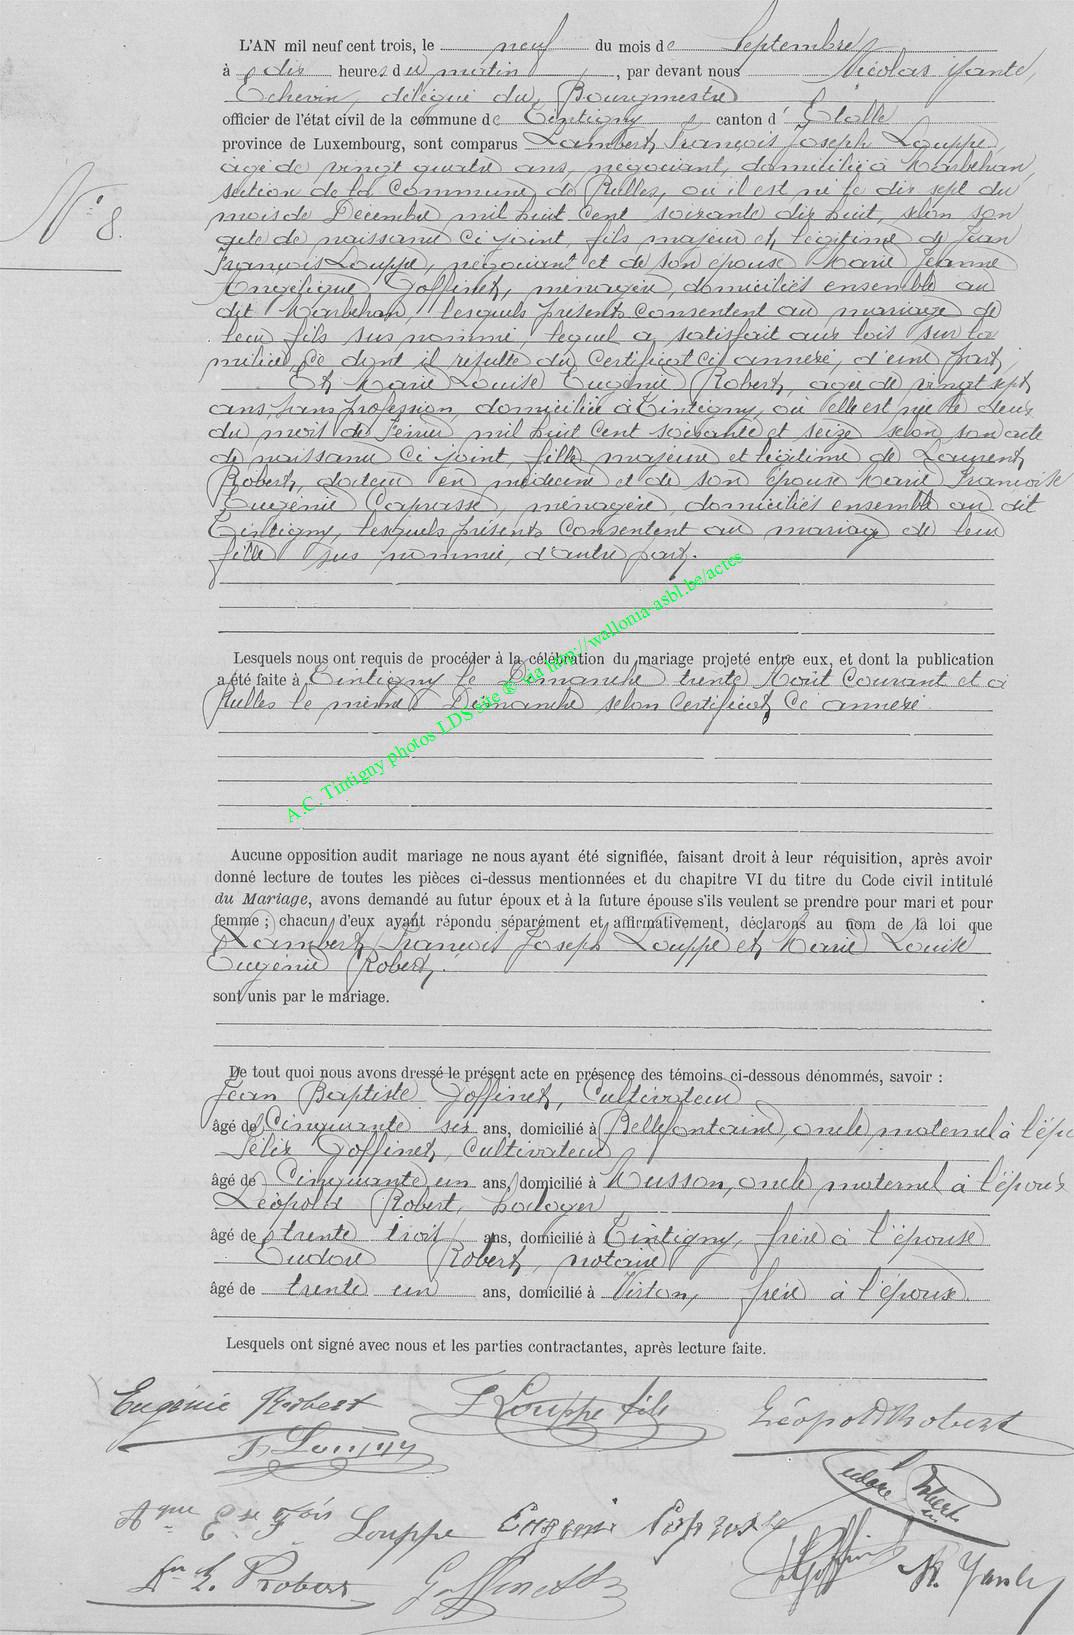 L'AN mil neuf cent trois, le neuf du mois de Septembre
à dix heures du matin, par devant nous Nicolas Yante,
Echevin, délégué du Bourgmestre
officier de l'état civil de la commune de Tintigny canton d'Etalle
province de Luxembourg, sont comparus Lambert François Joseph Louppe,
âgé de vingt quatre ans, négociant, domicilié à Marbehan,
section de la Commune de Rulles, où il est né le dix sept du
mois de Décembre mil huit cent soixante dix huit, selon son
acte de naissance ci joint, fils majeur et légitime de Jean
François Louppe, négociant et de son épouse Marie Jeanne
Angélique Goffinet, ménagère, domiciliés ensemble au
dit Marbehan, lesquels présents consentent au mariage de
leur fils sus nommé, lequel a satisfait aux lois sur la
milice, ce dont il résulte du certificat ci annexé, d'une part,
Et Marie Louise Eugénie Robert, agée de vingt sept
ans, sans profession, domiciliée à Tintigny, où elle est née le deux
du mois de Février mil huit cent soixante et seize selon son acte
de naissance ci joint, fille majeure et légitime de Laurent
Robert, docteur en médecine et de son épouse Marie Françoise
Eugénie Caprasse, ménagère, domiciliés ensemble au dit
Tintigny, lesquels présents consentent au mariage de leur
fille sus nommée, d'autre part.
Lesquels nous ont requis de procéder à la célébration du mariage projeté entre eux, et dont la publication
a été faite à Tintigny le Dimanche trente Août courant et à
Rulles le même Dimanche selon certificat ci annexé
Aucune opposition audit mariage ne nous ayant été signifiée, faisant droit à leur réquisition, après avoir
donné lecture de toutes les pièces ci-dessus mentionnées et du chapitre VI du titre du Code civil intitulé
du Mariage, avons demandé au futur époux et à la future épouse s'ils veulent se prendre pour mari et pour
femme ; chacun d'eux ayant répondu séparément et affirmativement, déclarons au nom de la loi que
Lambert François Joseph Louppe et Marie Louise
Eugénie Robert.
sont unis par le mariage.
De tout quoi nous avons dressé le présent acte en présence des témoins ci-dessous dénommés, savoir :
Jean Baptiste Goffinet, Cultivateur
âgé de Cinquante six ans, domicilié à Bellefontaine, oncle maternel à l'épo
Félix Goffinet, Cultivateur
âgé de Cinquante un ans, domicilié à Musson, oncle maternel à l'époux
Léopold Robert, horloger
âgé de trente trois ans, domicilié à Tintigny, frère à l'épouse
Eudore Robert, notaire
âgé de trente un ans, domicilié à Virton, frère à l'épouse.
Lesquels ont signé avec nous et les parties contractantes, après lecture faite.
Eugénie Robert F Louppe fils Léopold Robert
Eudore Robert
Aque Louppe Eugénie Caprasse
Robert Goffinet J Goffinet N. Yante
N° 8.
A.C. Tintigny photos LDS site ® via http://wallonia-asbl.be/actes